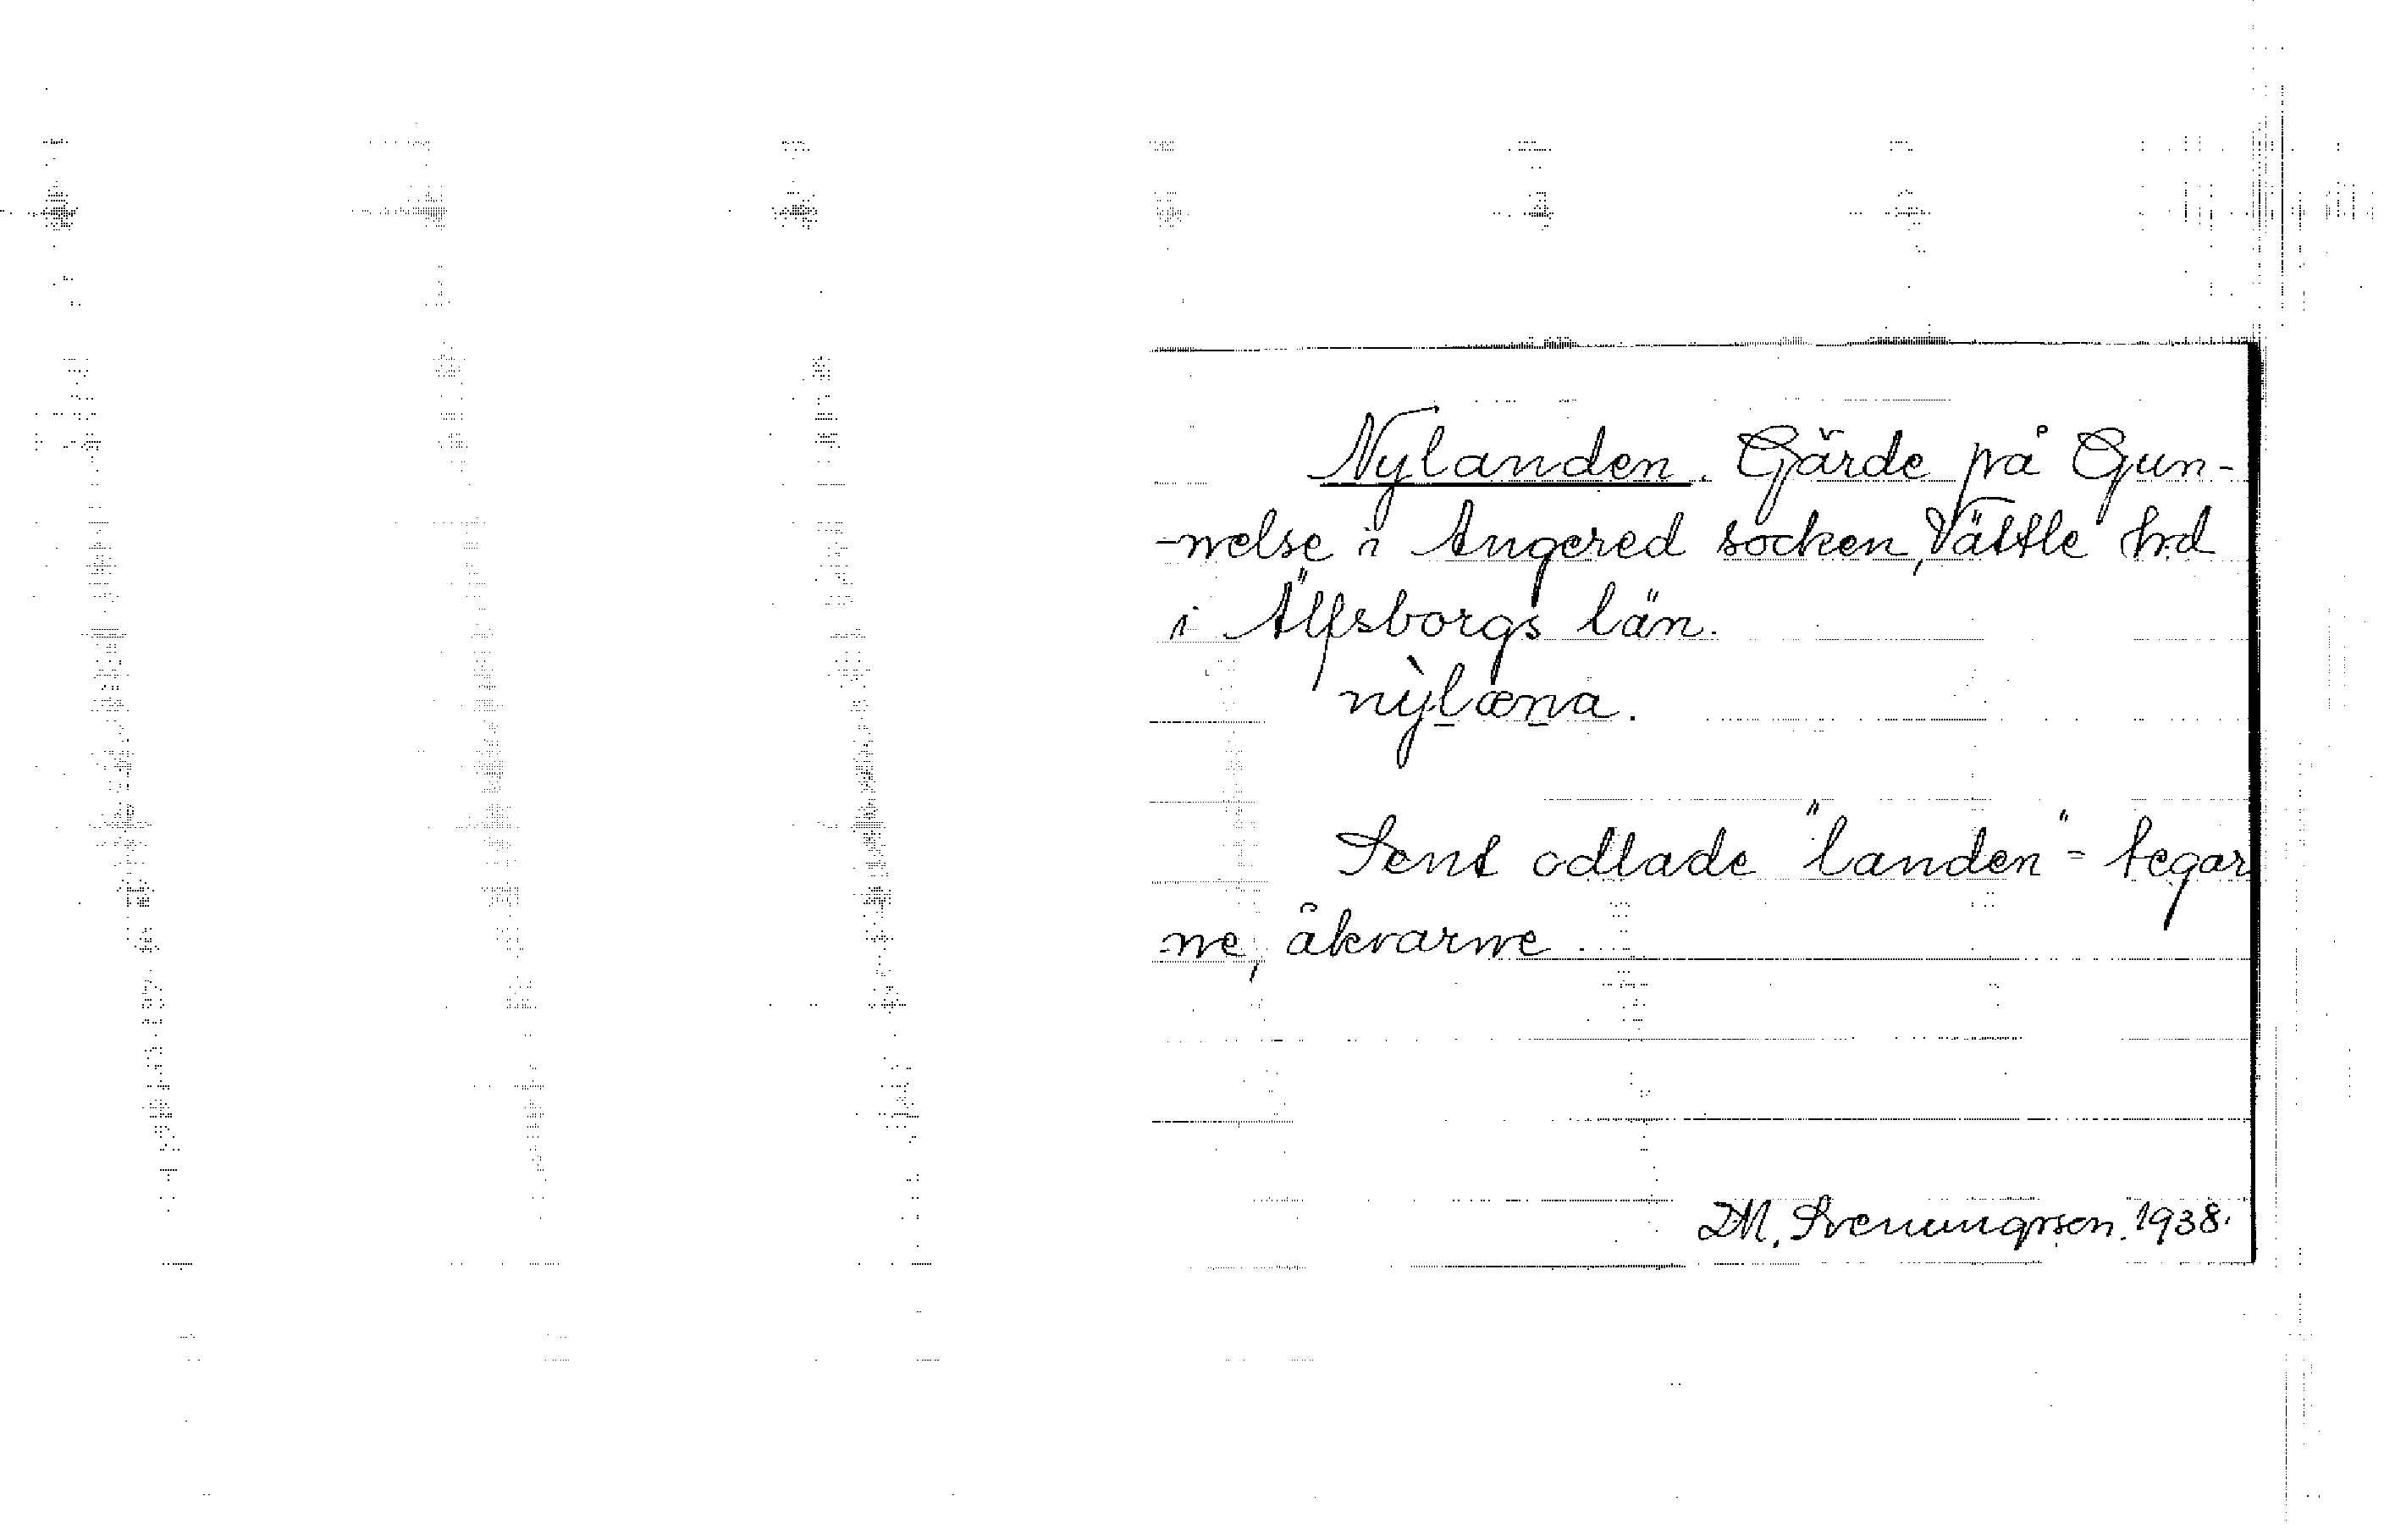 Nylanden. Gärde på Gun-
-nelse i Angered socken, Vättle hd
i Älfsborgs län.
nỳlæna.
Sent odlade "landen" = tegar
-ne, åkrarne.
D.M. Svenungsson. 1938.